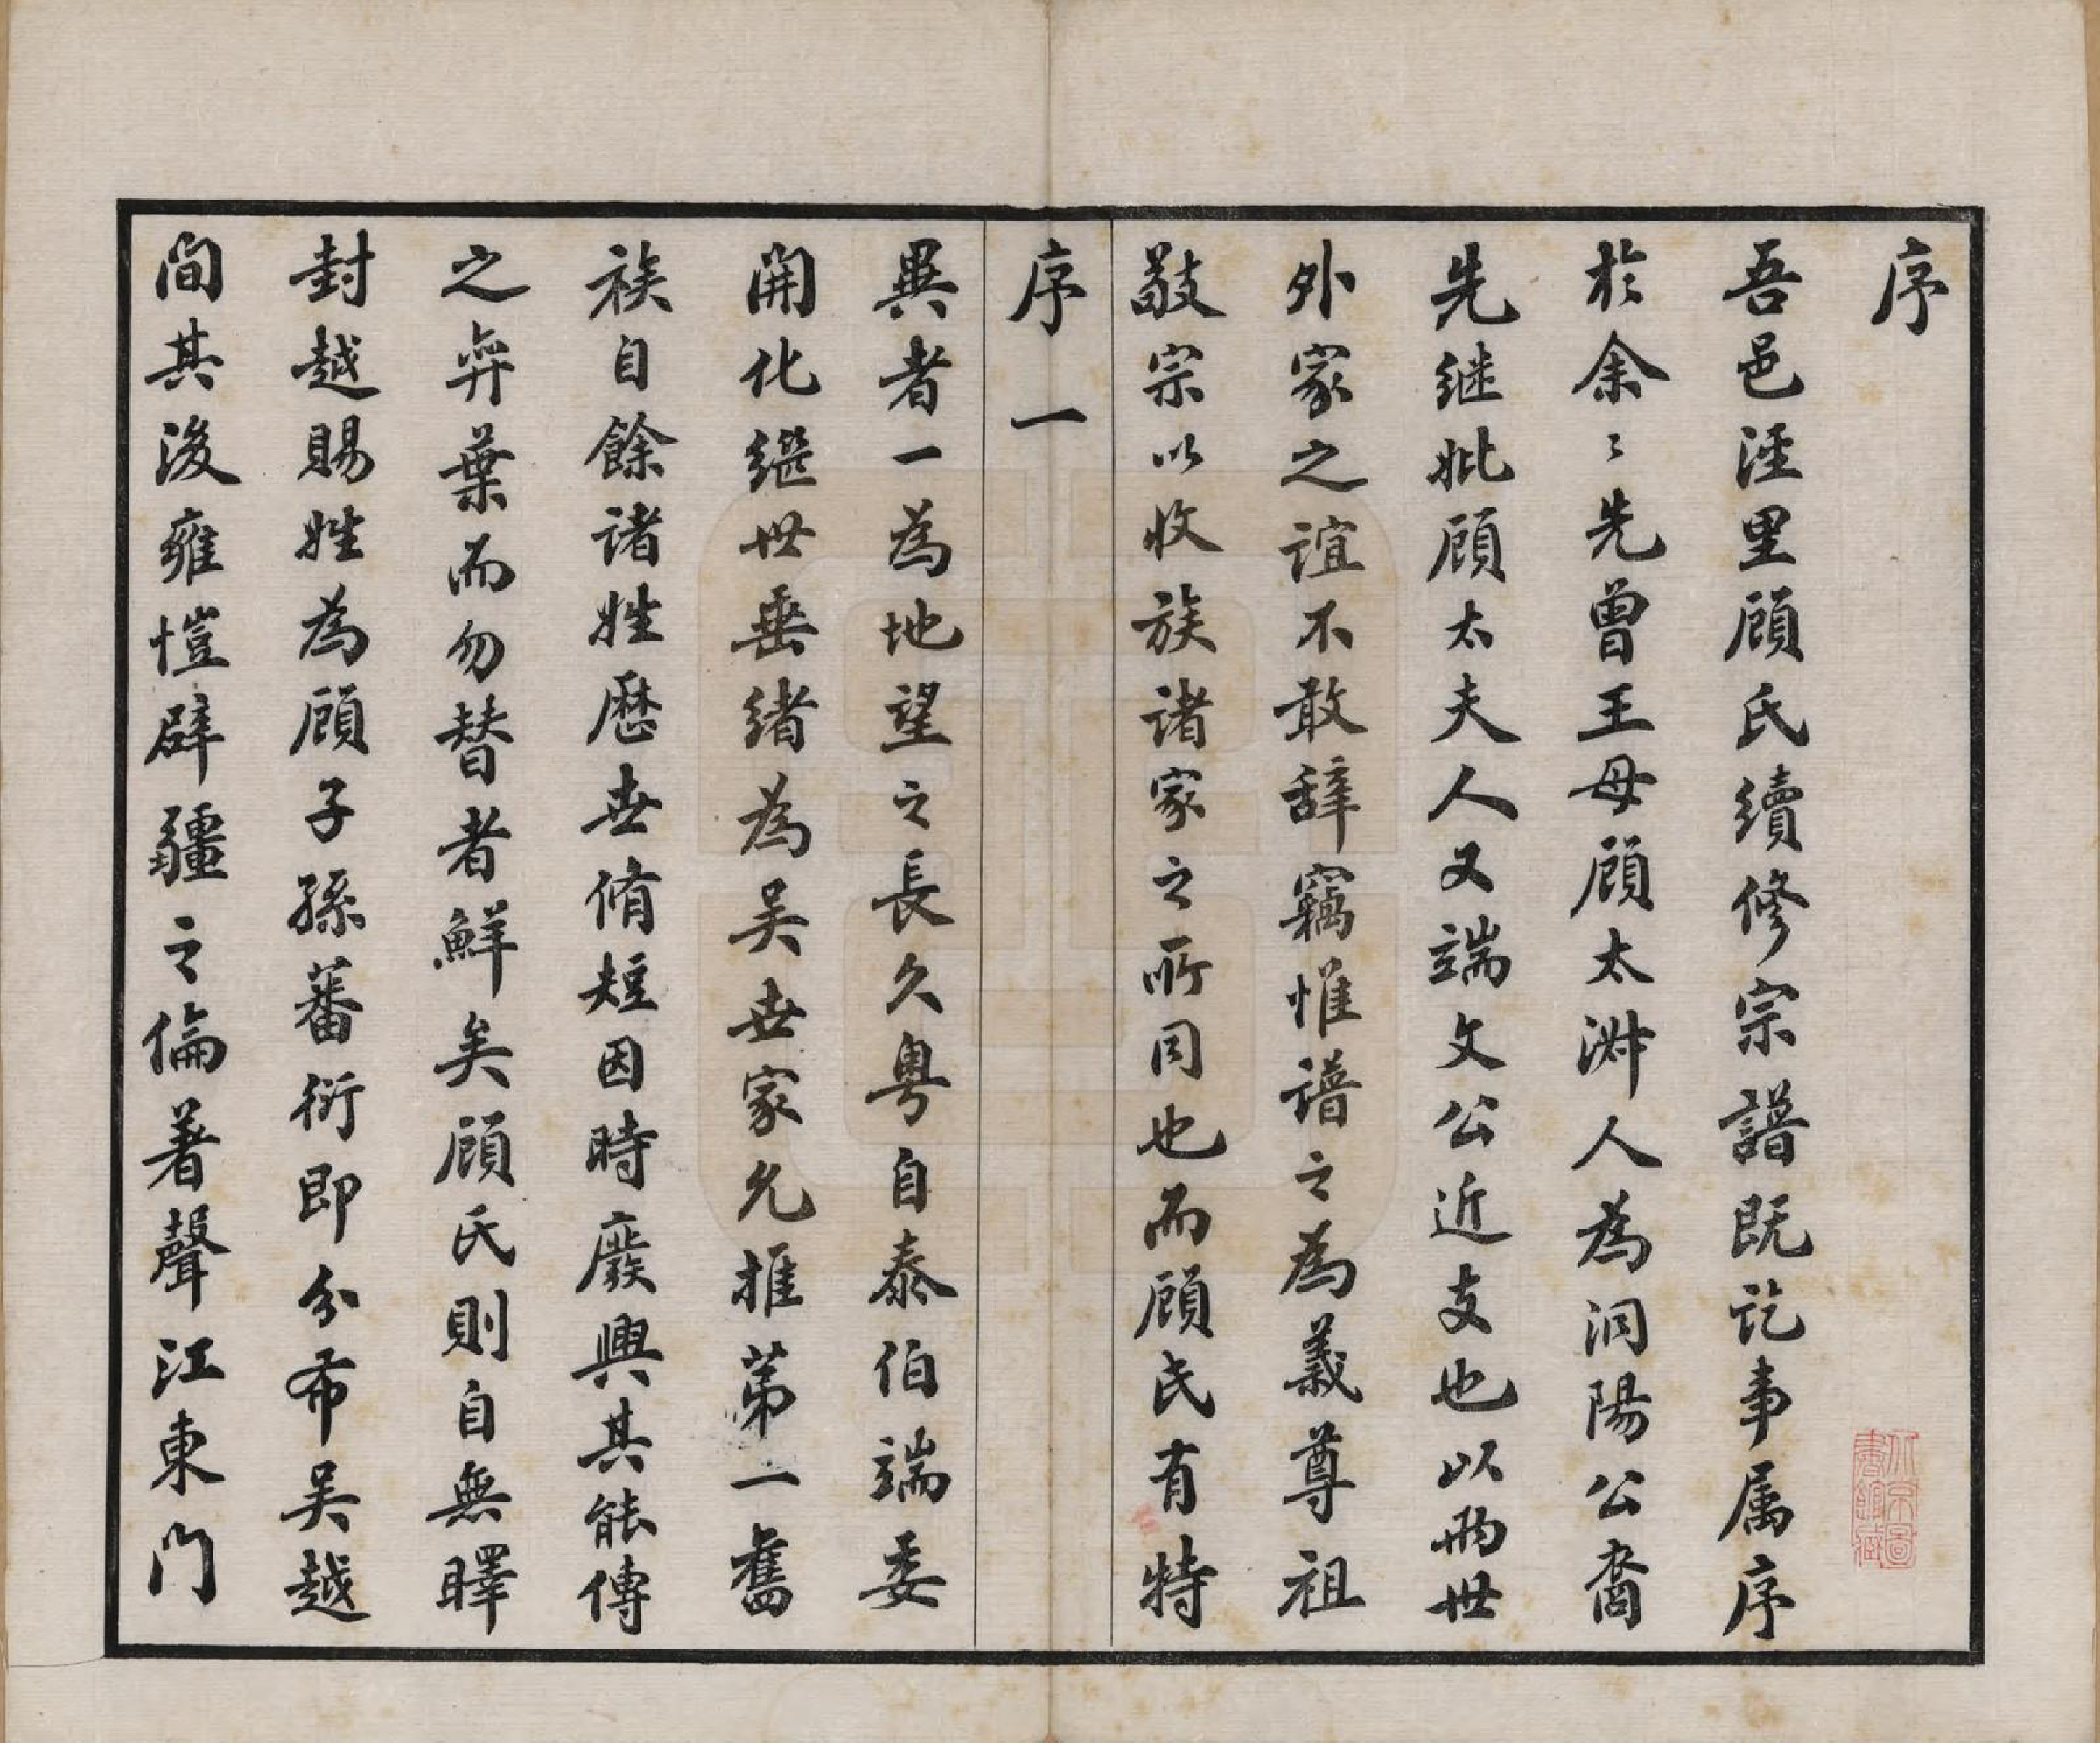 序
吾邑涇里顧氏續修宗譜既訖事属序
於余〻先曾王母顧太淑人為洞陽公裔
先继妣顧太夫人又端文公近支也以兩世
外家之誼不敢辞竊惟譜之為義尊祖
敬宗以收族诸家之所同也而顧氏有特
序一
異者一為地望之長久粤自泰伯端委
開化继世垂绪為吴世家允推第一舊
族自餘诸姓歷世脩短因時廢興其能傳
之弈葉而勿替者鮮矣顧氏則自無晫
封越賜姓為顧子孫蕃衍即分布吴越
间其後雍愷辟疆之倫著聲江東门
北京圖
書館藏